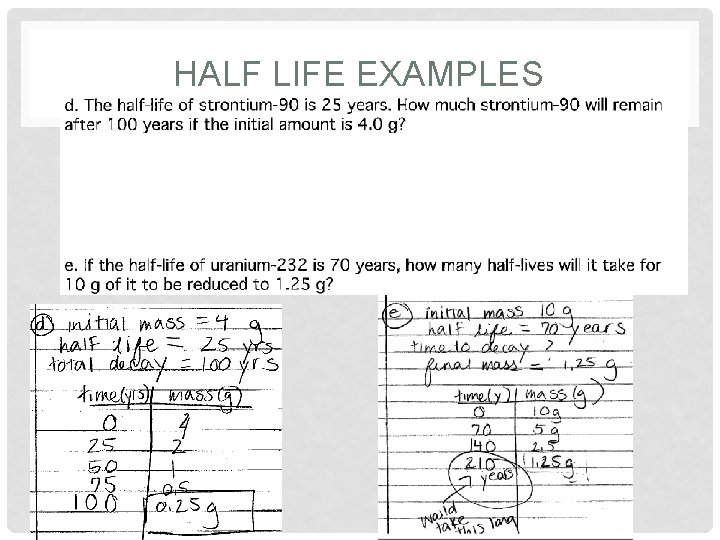 HALF LIFE EXAMPLES
d. The half-life of strontium-90 is 25 years. How much strontium-90 will remain
after 100 years if the initial amount is 4.0 g?
e. If the half-life of uranium-232 is 70 years, how many half-lives will it take for
10 g of it to be reduced to 1.25 g?
d initial mass = 4 g
half life = 25 yrs
total decay = 100 yrs
time(yrs) mass(g)
0 4
25 2
50 1
75 0.5
100 0.25 g
e initial mass 10 g
half life = 70 years
time to decay ?
final mass = 1.25 g
time(y) mass(g)
0 10g
70 5g
140 2.5
210 1.25g
years
would
take
this long